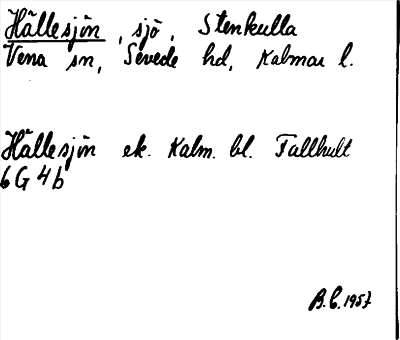 Hällesjön, sjö, Stenkulla
Vena sn, Sevede hd, Kalmar l.
Hällesjön ek. Kalm. bl. Fallhult
6G 4b
B.C. 1957